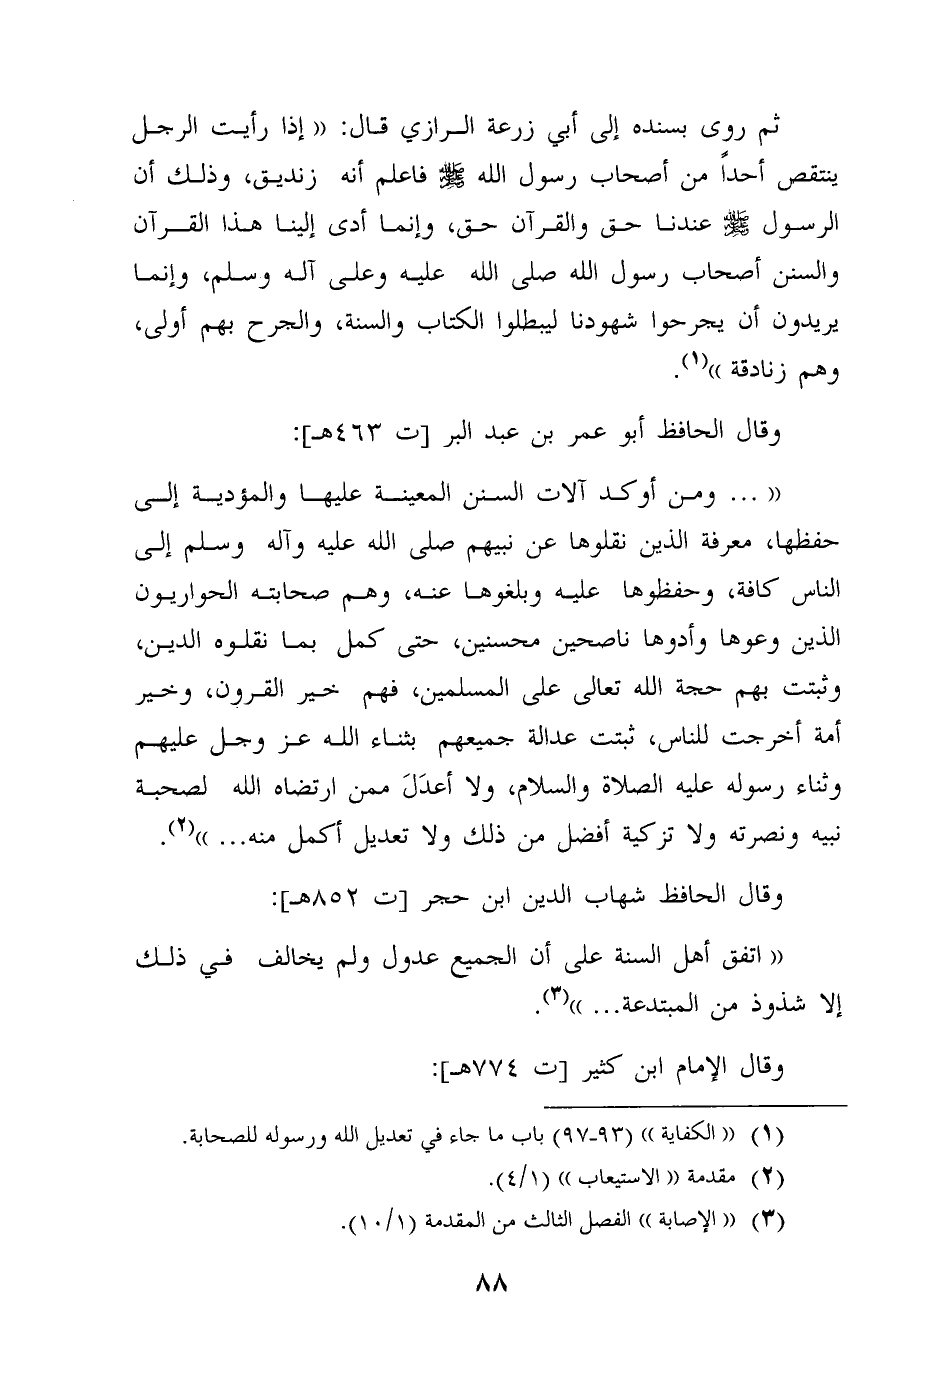 ثم روى بسنده إلى أبي زرعة الرازي قال: (( إذا رأيت الرجل
ينتقص أحداً من أصحاب رسول الله ﷺ فاعلم أنه زنديق، وذلك أن
الرسول ﷺ عندنا حق والقرآن حق، وإنما أدى إلينا هذا القرآن
والسنن أصحاب رسول الله صلى الله عليه وعلى آله وسلم، وإنما
يريدون أن يجرحوا شهودنا ليبطلوا الكتاب والسنة، والجرح بهم أولى،
وهم زنادقة ))(١).
وقال الحافظ أبو عمر بن عبد البر [ت ٤٦٣هـ]:
(( ... ومن أوكد آلات السنن المعينة عليها والمؤدية إلى
حفظها، معرفة الذين نقلوها عن نبيهم صلى الله عليه وآله وسلم إلى
الناس كافة، وحفظوها عليه وبلغوها عنه، وهم صحابته الحواريون
الذين وعوها وأدوها ناصحين محسنين، حتى كمل بما نقلوه الدين،
وثبتت بهم حجة الله تعالى على المسلمين، فهم خير القرون، وخير
أمة أخرجت للناس، ثبتت عدالة جميعهم بثناء الله عز وجل عليهم
وثناء رسوله عليه الصلاة والسلام، ولا أعدَلَ ممن ارتضاه الله لصحبة
نبيه ونصرته ولا تزكية أفضل من ذلك ولا تعديل أكمل منه... ))(٢).
وقال الحافظ شهاب الدين ابن حجر [ت ٨٥٢هـ]:
(( اتفق أهل السنة على أن الجميع عدول ولم يخالف في ذلك
إلا شذوذ من المبتدعة... ))(٣).
وقال الإمام ابن كثير [ت ٧٧٤هـ]:
(١) (( الكفاية )) (٩٣-٩٧) باب ما جاء في تعديل الله ورسوله للصحابة.
(٢) مقدمة (( الاستيعاب )) (٤/١).
(٣) (( الإصابة )) الفصل الثالث من المقدمة (١٠/١).
٨٨